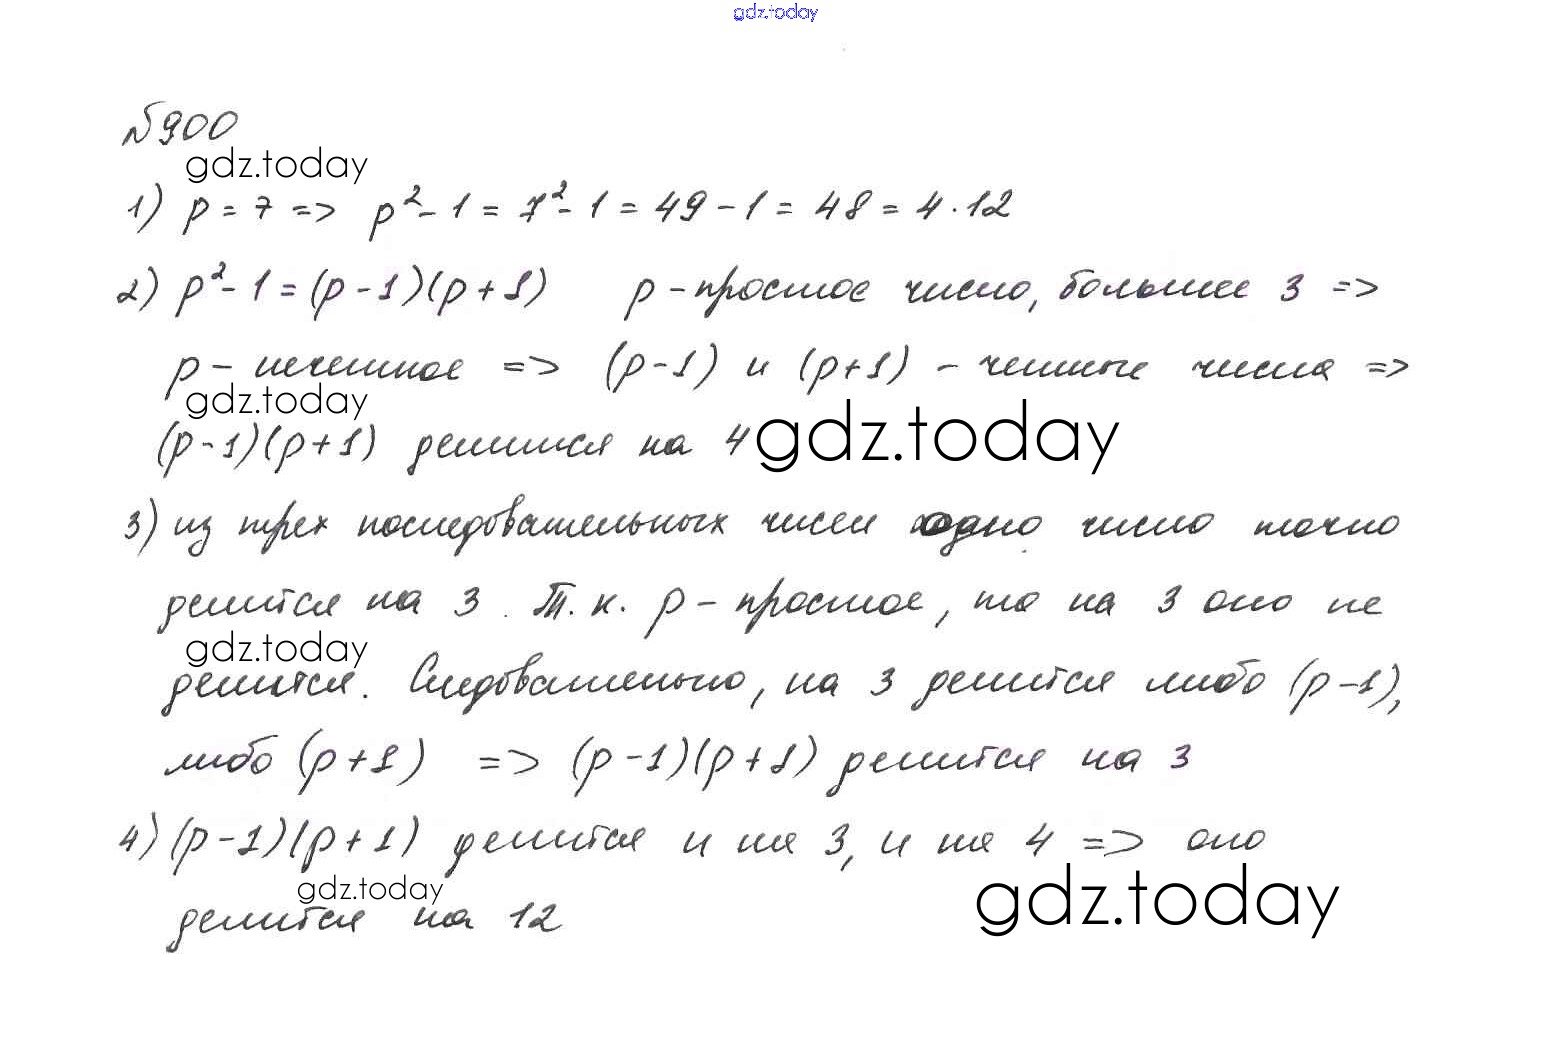 gdz.today
№900
gdz.today
1) p = 7 => p²-1 = 7²-1 = 49-1 = 48 = 4·12
2) p²-1 = (p-1)(p+1) p - простое число, большее 3 =>
p - нечетное => (p-1) и (p+1) - четные числа =>
gdz.today
(p-1)(p+1) делится на 4 gdz.today
3) из трех последовательных чисел одно число точно
делится на 3. Т.к. p - простое, то на 3 оно не
gdz.today
делится. Следовательно, на 3 делится либо (p-1),
либо (p+1) => (p-1)(p+1) делится на 3
4) (p-1)(p+1) делится и на 3, и на 4 => оно
gdz.today gdz.today
делится на 12